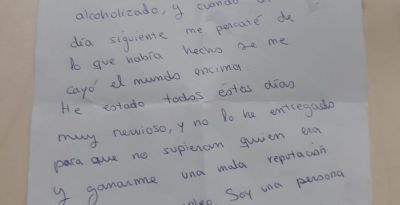 alcoholizado, y cuando
día siguiente me percaté de
lo que había hecho se me
cayó el mundo encima.
He estado todos éstos días
muy nervioso, y no lo he entregado
para que no supieran quien era
y ganarme una mala reputación
Soy una persona